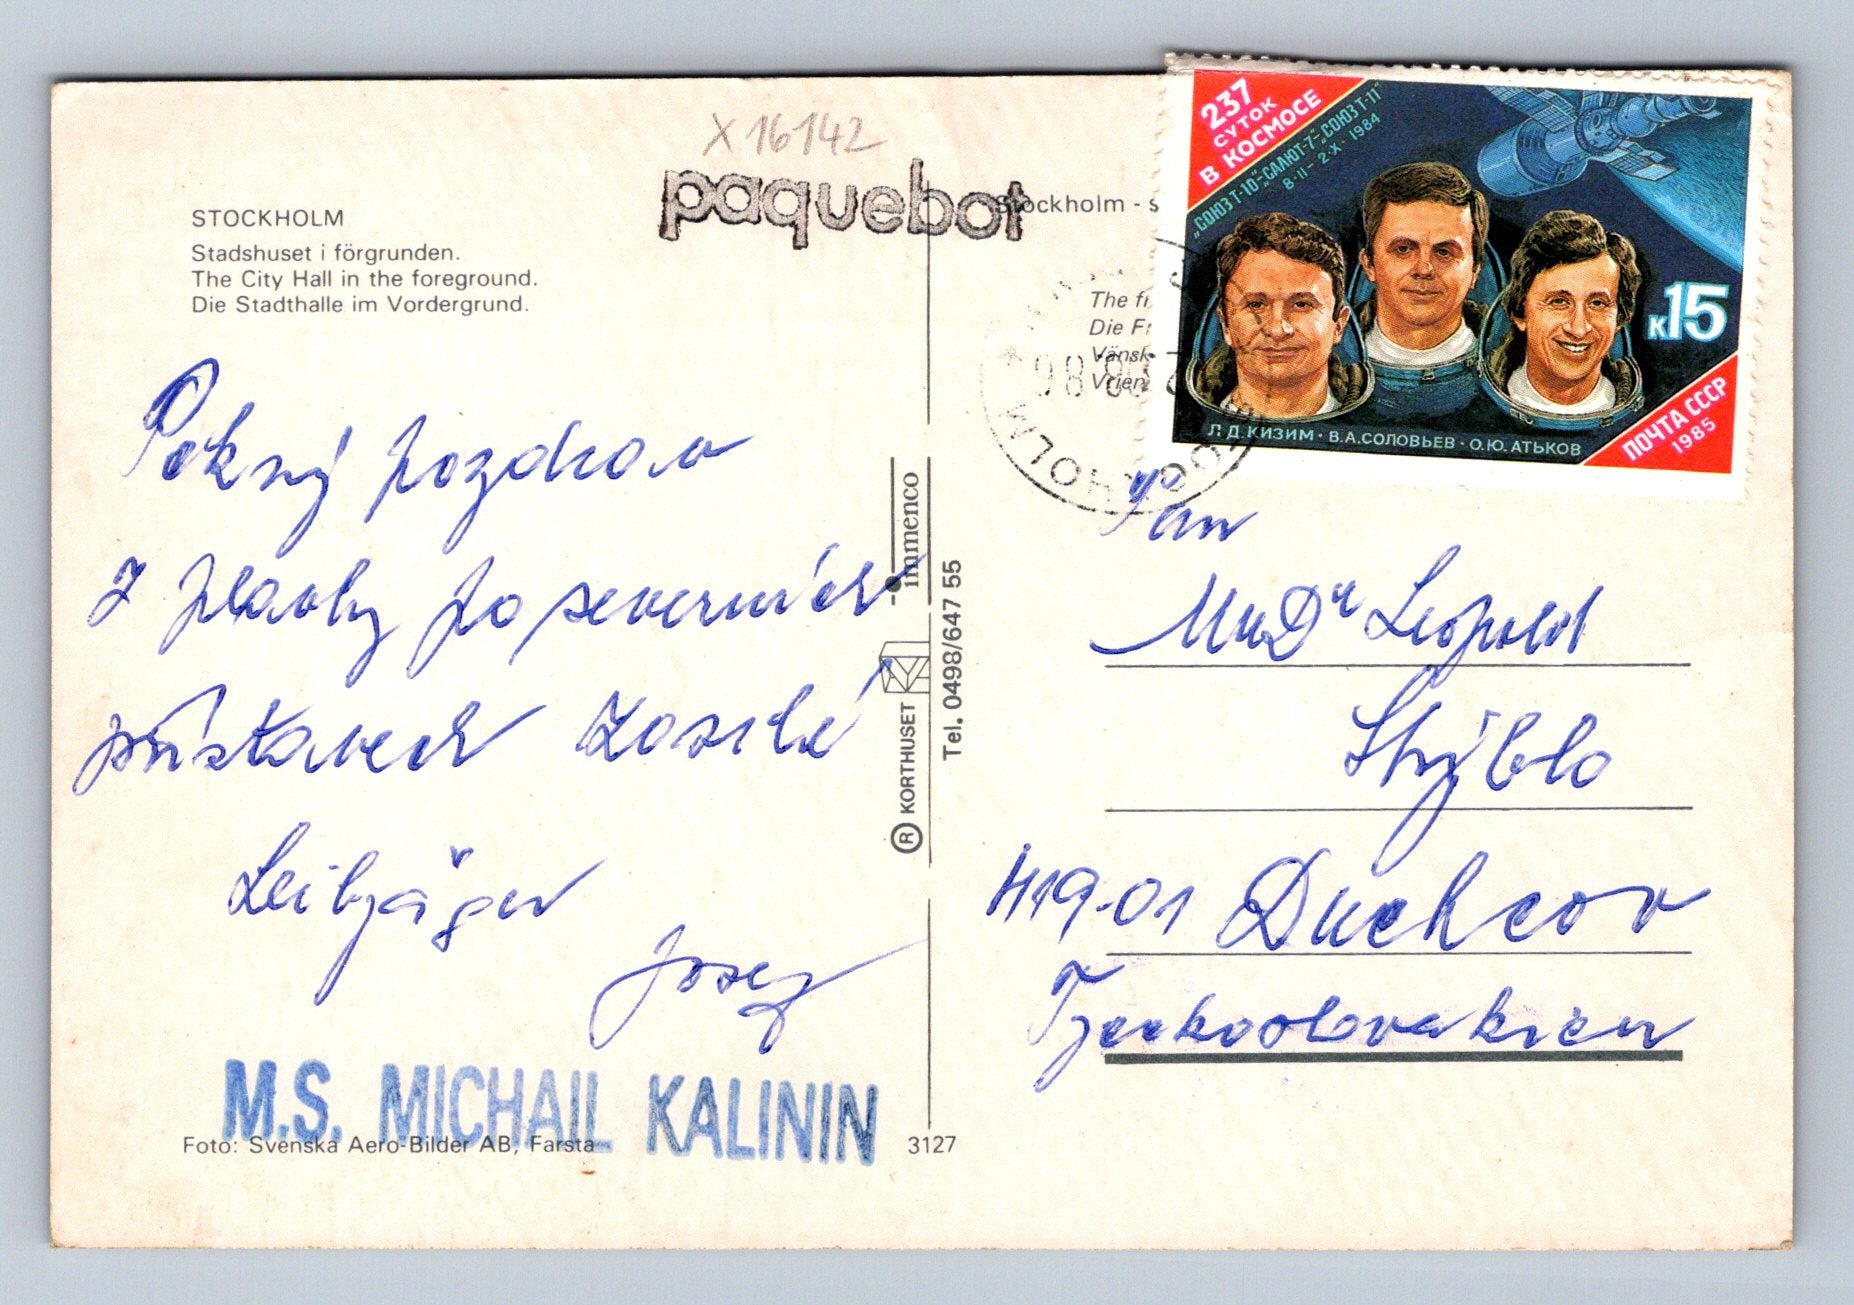 X 16142
paquebot
STOCKHOLM
Stadshuset i förgrunden.
The City Hall in the foreground.
Die Stadthalle im Vordergrund.
Pěkný pozdrav
z plavby po severních
přístavech zasílá
Leibjäger
Josef
M.S. MICHAIL KALININ
Foto: Svenska Aero-Bilder AB, Farsta
3127
immenco
® KORTHUSET
Tel. 0498/647 55
Stockholm - s
The fr
Die Fr
Vänsk
Vrien
STOCKHOLM
237
СУТОК
В КОСМОСЕ
„СОЮЗ Т-10"-„САЛЮТ-7"-„СОЮЗ Т-11"
8·II — 2·X·1984
к15
Л.Д.КИЗИМ · В.А.СОЛОВЬЕВ · О.Ю.АТЬКОВ
ПОЧТА СССР
1985
Pan
MUDr Leopold
Stýblo
419-01 Duchcov
Tzechoslovakien